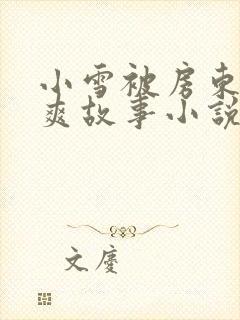 小雪被房东
爽故事小説
文慶